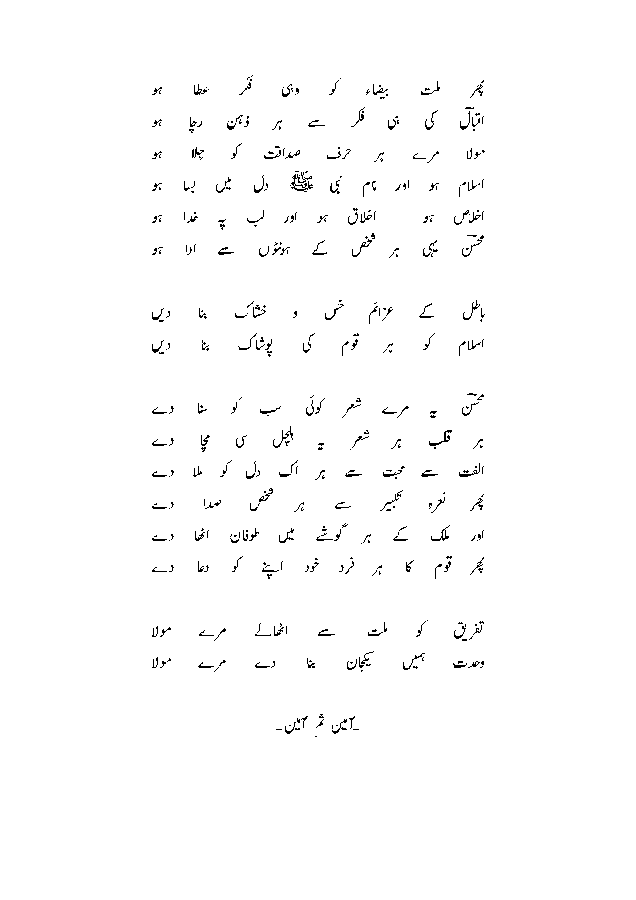 پھر ملت بیضاء کو وہی فکر عطا ہو
اقبالؔ کی ہی فکر سے ہر ذہن رچا ہو
مولا مرے ہر حرف صداقت کو جلا ہو
اسلام ہو اور نام نبی ﷺ دل میں بسا ہو
اخلاص ہو اخلاق ہو اور لب پہ خدا ہو
محسنؔ یہی ہر شخص کے ہونٹوں سے ادا ہو
باطل کے عزائم خس و خشاک بنا دیں
اسلام کو ہر قوم کی پوشاک بنا دیں
محسنؔ یہ مرے شعر کوئی سب کو سنا دے
ہر قلب ہر شعر یہ ہلچل سی مچا دے
الفت سے محبت سے ہر اک دل کو ملا دے
پھر نعرہ تکبیر سے ہر شخص صدا دے
اور ملک کے ہر گوشے میں طوفان اٹھا دے
پھر قوم کا ہر فرد خود اپنے کو دعا دے
تفریق کو ملت سے اٹھالے مرے مولا
وحدت ہمیں یکجان بنا دے مرے مولا
۔آمین ثم آمین۔